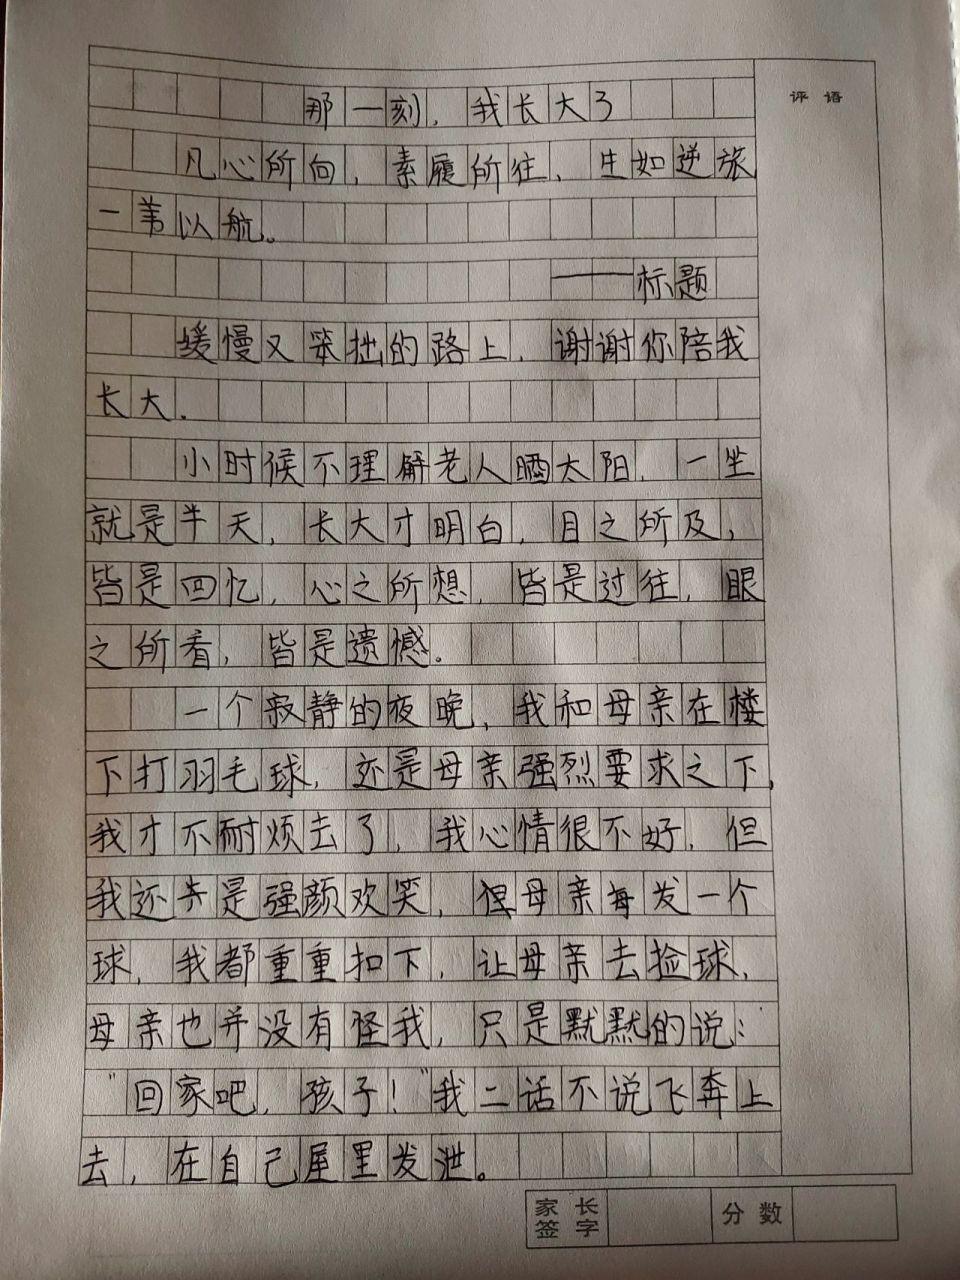 那一刻，我长大了
评语
凡心所向，素履所往，生如逆旅
一苇以航。
——标题
缓慢又笨拙的路上，谢谢你陪我
长大．
小时候不理解老人晒太阳，一坐
就是半天，长大才明白，目之所及，
皆是回忆，心之所想，皆是过往，眼
之所看，皆是遗憾．
一个寂静的夜晚，我和母亲在楼
下打羽毛球，还是母亲强烈要求之下，
我才不耐烦去了，我心情很不好，但
我还是强颜欢笑，但母亲每发一个
球，我都重重扣下，让母亲去捡球，
母亲也并没有怪我，只是默默的说：
“回家吧，孩子！”我二话不说飞奔上
去，在自己屋里发泄。
家长
签字
分数